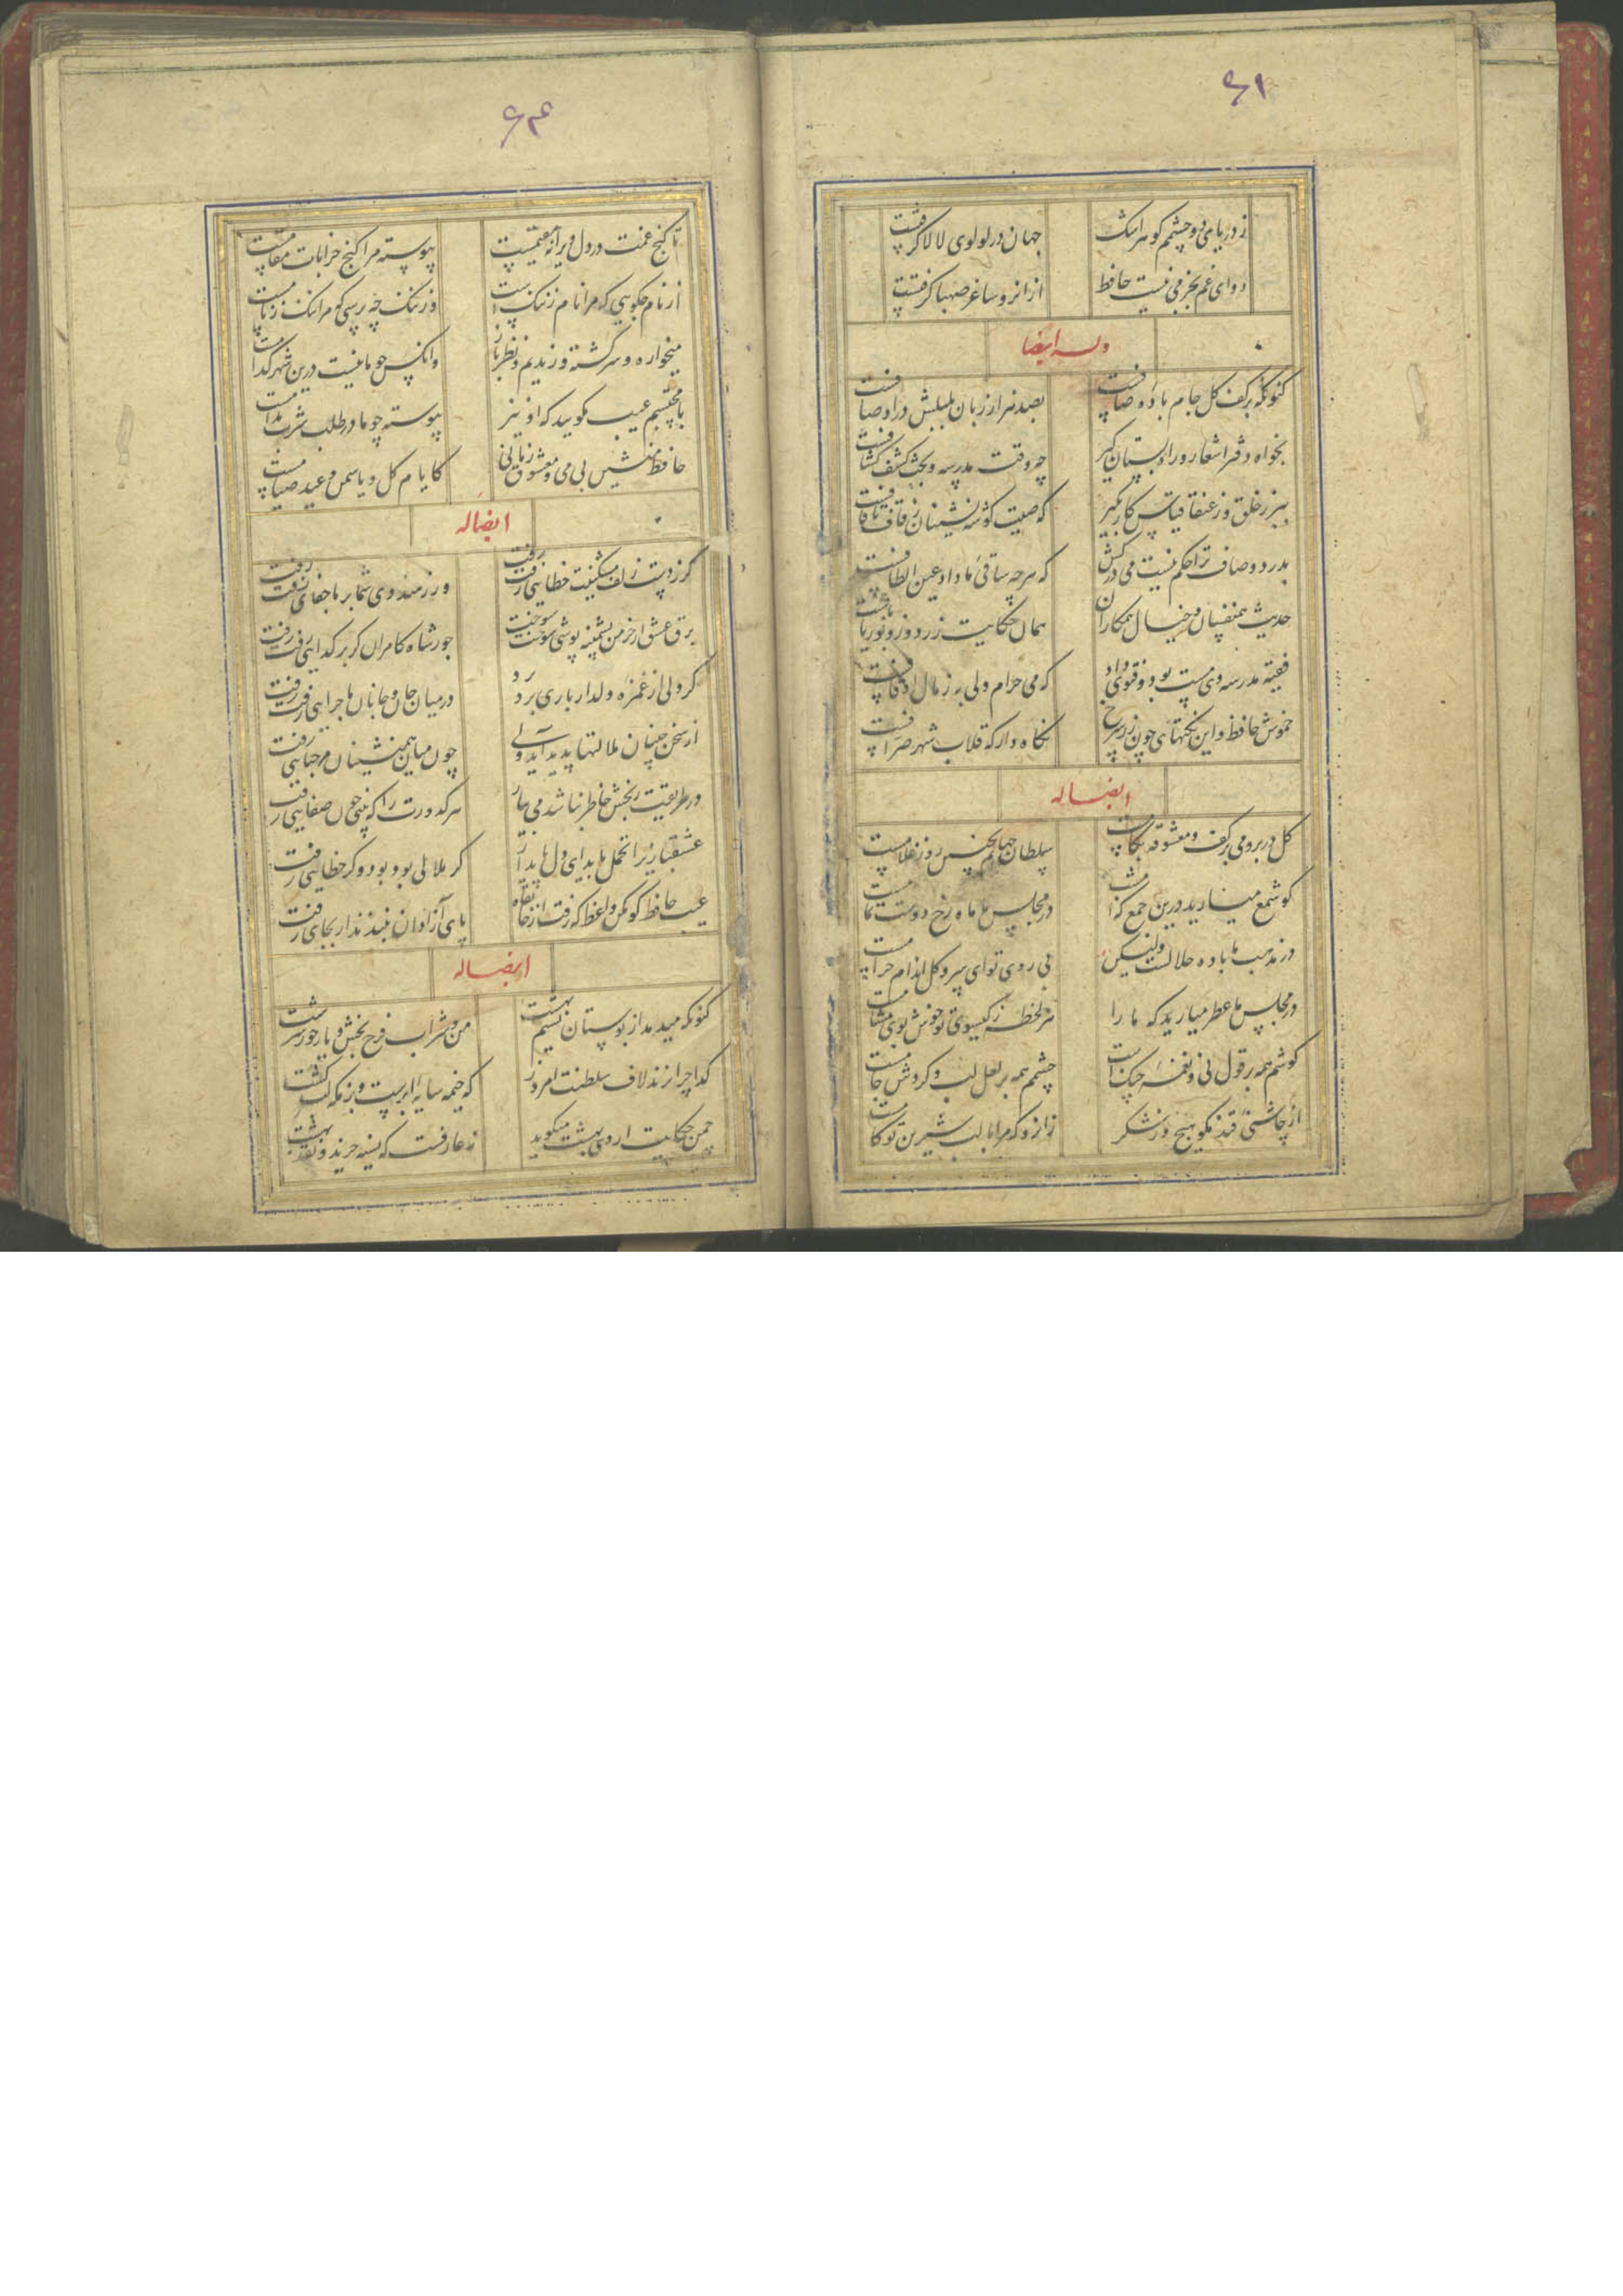 ۶۱
ز دریای دو چشمم کوهر اشک
جهان در لولوی لالا کرفتست
دوای غم بجز می نیست حافظ
از انرو ساغر صهبا کرفتست
وله ایضا
کنونکه بر کف کل جام باده صافست
بصد هزار زبان بلبلش در اوصافست
بخواه دفتر اشعار و راه بستان کیر
چه وقت مدرسه و بحث کشف کشافست
ببر ز خلق و ز عنقا قیاس کار بکیر
که صیت کوشه نشینان ز قاف تا قافست
بدرد و صاف ترا حکم نیست می درکش
که هر چه ساقی ما داد عین الطافست
حدیث همنفسان و خیال همکاران
همان حکایت زردوز و بوریا بافست
فقیه مدرسه دی مست بود و فتوی داد
که می حرام ولی به ز مال اوقافست
خموش حافظ و این نکتهای چون زر سرخ
نکاه دار که قلاب شهر صرافست
ایضا له
کل در بر و می بر کف و معشوقه بکامست
سلطان جهانم بچنین روز غلامست
کو شمع میارید درین جمع که امشب
در مجلس ما ماه رخ دوست تمامست
در مذهب ما باده حلالست ولیکن
بی روی تو ای سرو کل اندام حرامست
در مجلس ما عطر میارید که ما را
هر لحظه ز کیسوی تو خوش بوی مشامست
کوشم همه بر قول نی و نغمه چنک است
چشمم همه بر لعل لب و کردش جامست
از چاشنی قند مکو هیچ و ز شکر
زانرو که مرا با لب شیرین تو کامست
۶۴
تا کنج غمت در دل ویرانه مقیمست
پیوسته مرا کنج خرابات مقامست
از نام چکویی که مرا نام ز ننک است
وز ننک چه پرسی که مرا ننک ز نامست
میخواره و سرکشته و رندیم و نظرباز
وانکس چو ما نیست درین شهر کدامست
با محتسبم عیب مکویید که او نیز
پیوسته چو ما در طلب شرب مدامست
حافظ منشین بی می و معشوق زمانی
کایام کل و یاسمن و عید صیامست
ایضا له
کر ز دست زلف مشکینت خطایی رفت رفت
ور ز هندوی شما بر ما جفایی رفت رفت
برق عشق ار خرمن پشمینه پوشی سوخت سوخت
جور شاه کامران کر بر کدایی رفت رفت
کر دلی از غمزه دلدار باری برد برد
در میان جان و جانان ماجرایی رفت رفت
از سخن چینان ملالتها پدید آید ولی
چون میان همنشینان ناسزایی رفت رفت
در طریقت رنجش خاطر نباشد می بیار
هر کدورت را که بینی چون صفایی رفت رفت
عشقبازیرا تحمل باید ای دل پای دار
کر ملالی بود بود و کر خطایی رفت رفت
عیب حافظ کو مکن واعظ که رفت از خانقاه
پای آزادان نبندند ار بجایی رفت رفت
ایضا له
کنونکه میدمد از بوستان نسیم بهشت
من و شراب فرح بخش و یار حور سرشت
کدا چرا نزند لاف سلطنت امروز
که خیمه سایه ابرست و بزمکه لب کشت
چمن حکایت اردی بهشت میکوید
نه عارفست که نسیه خرید و نقد بهشت